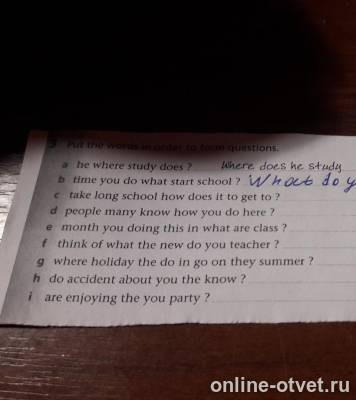 3 Put the words in order to form questions.
a he where study does ? Where does he study
b time you do what start school ? What do y
c take long school how does it to get to ?
d people many know how you do here ?
e month you doing this in what are class ?
f think of what the new do you teacher ?
g where holiday the do in go on they summer ?
h do accident about you the know ?
i are enjoying the you party ?
online-otvet.ru